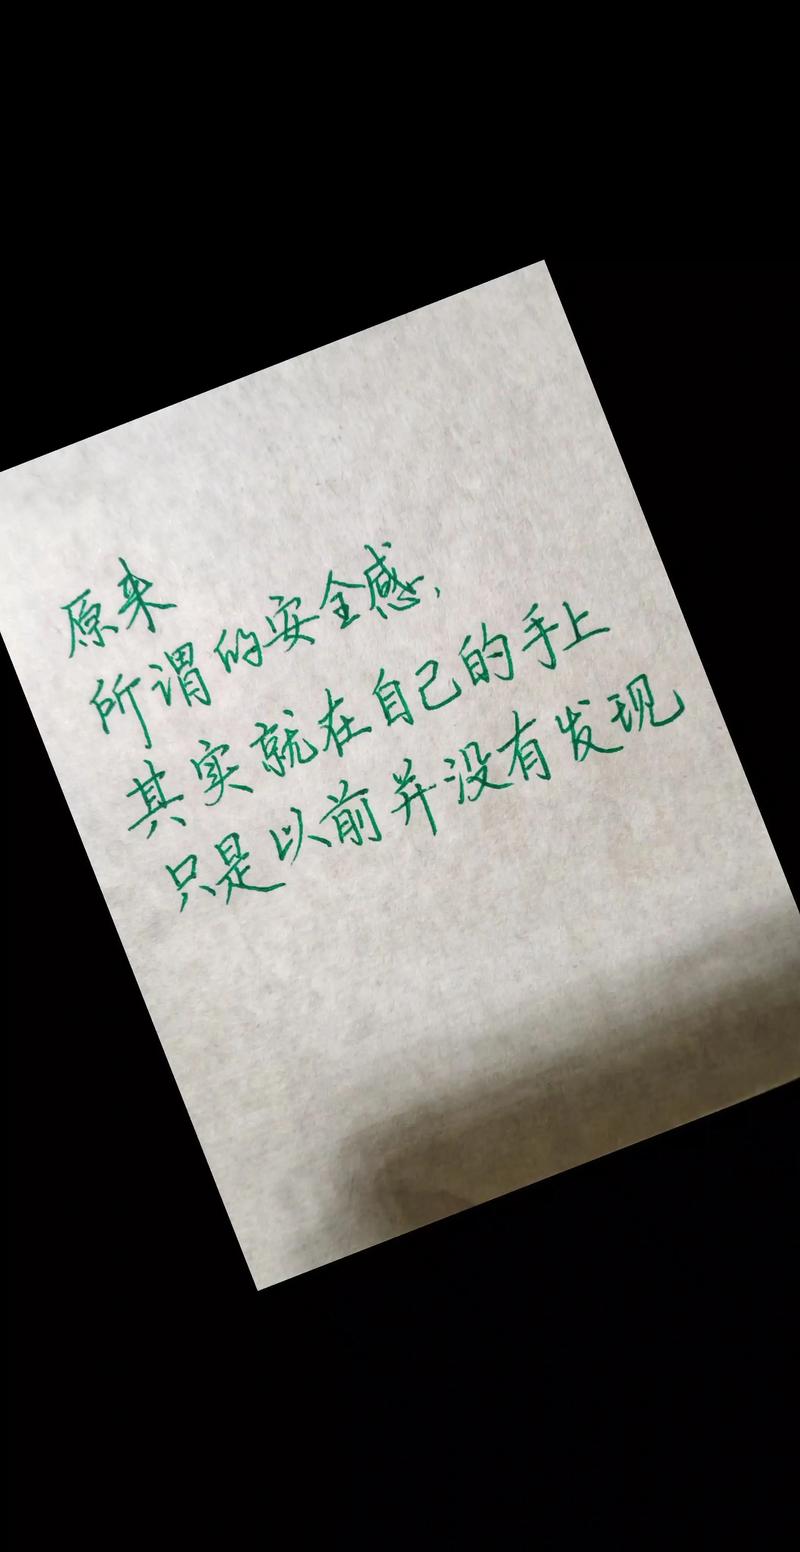 原来
所谓的安全感，
其实就在自己的手上
只是以前并没有发现